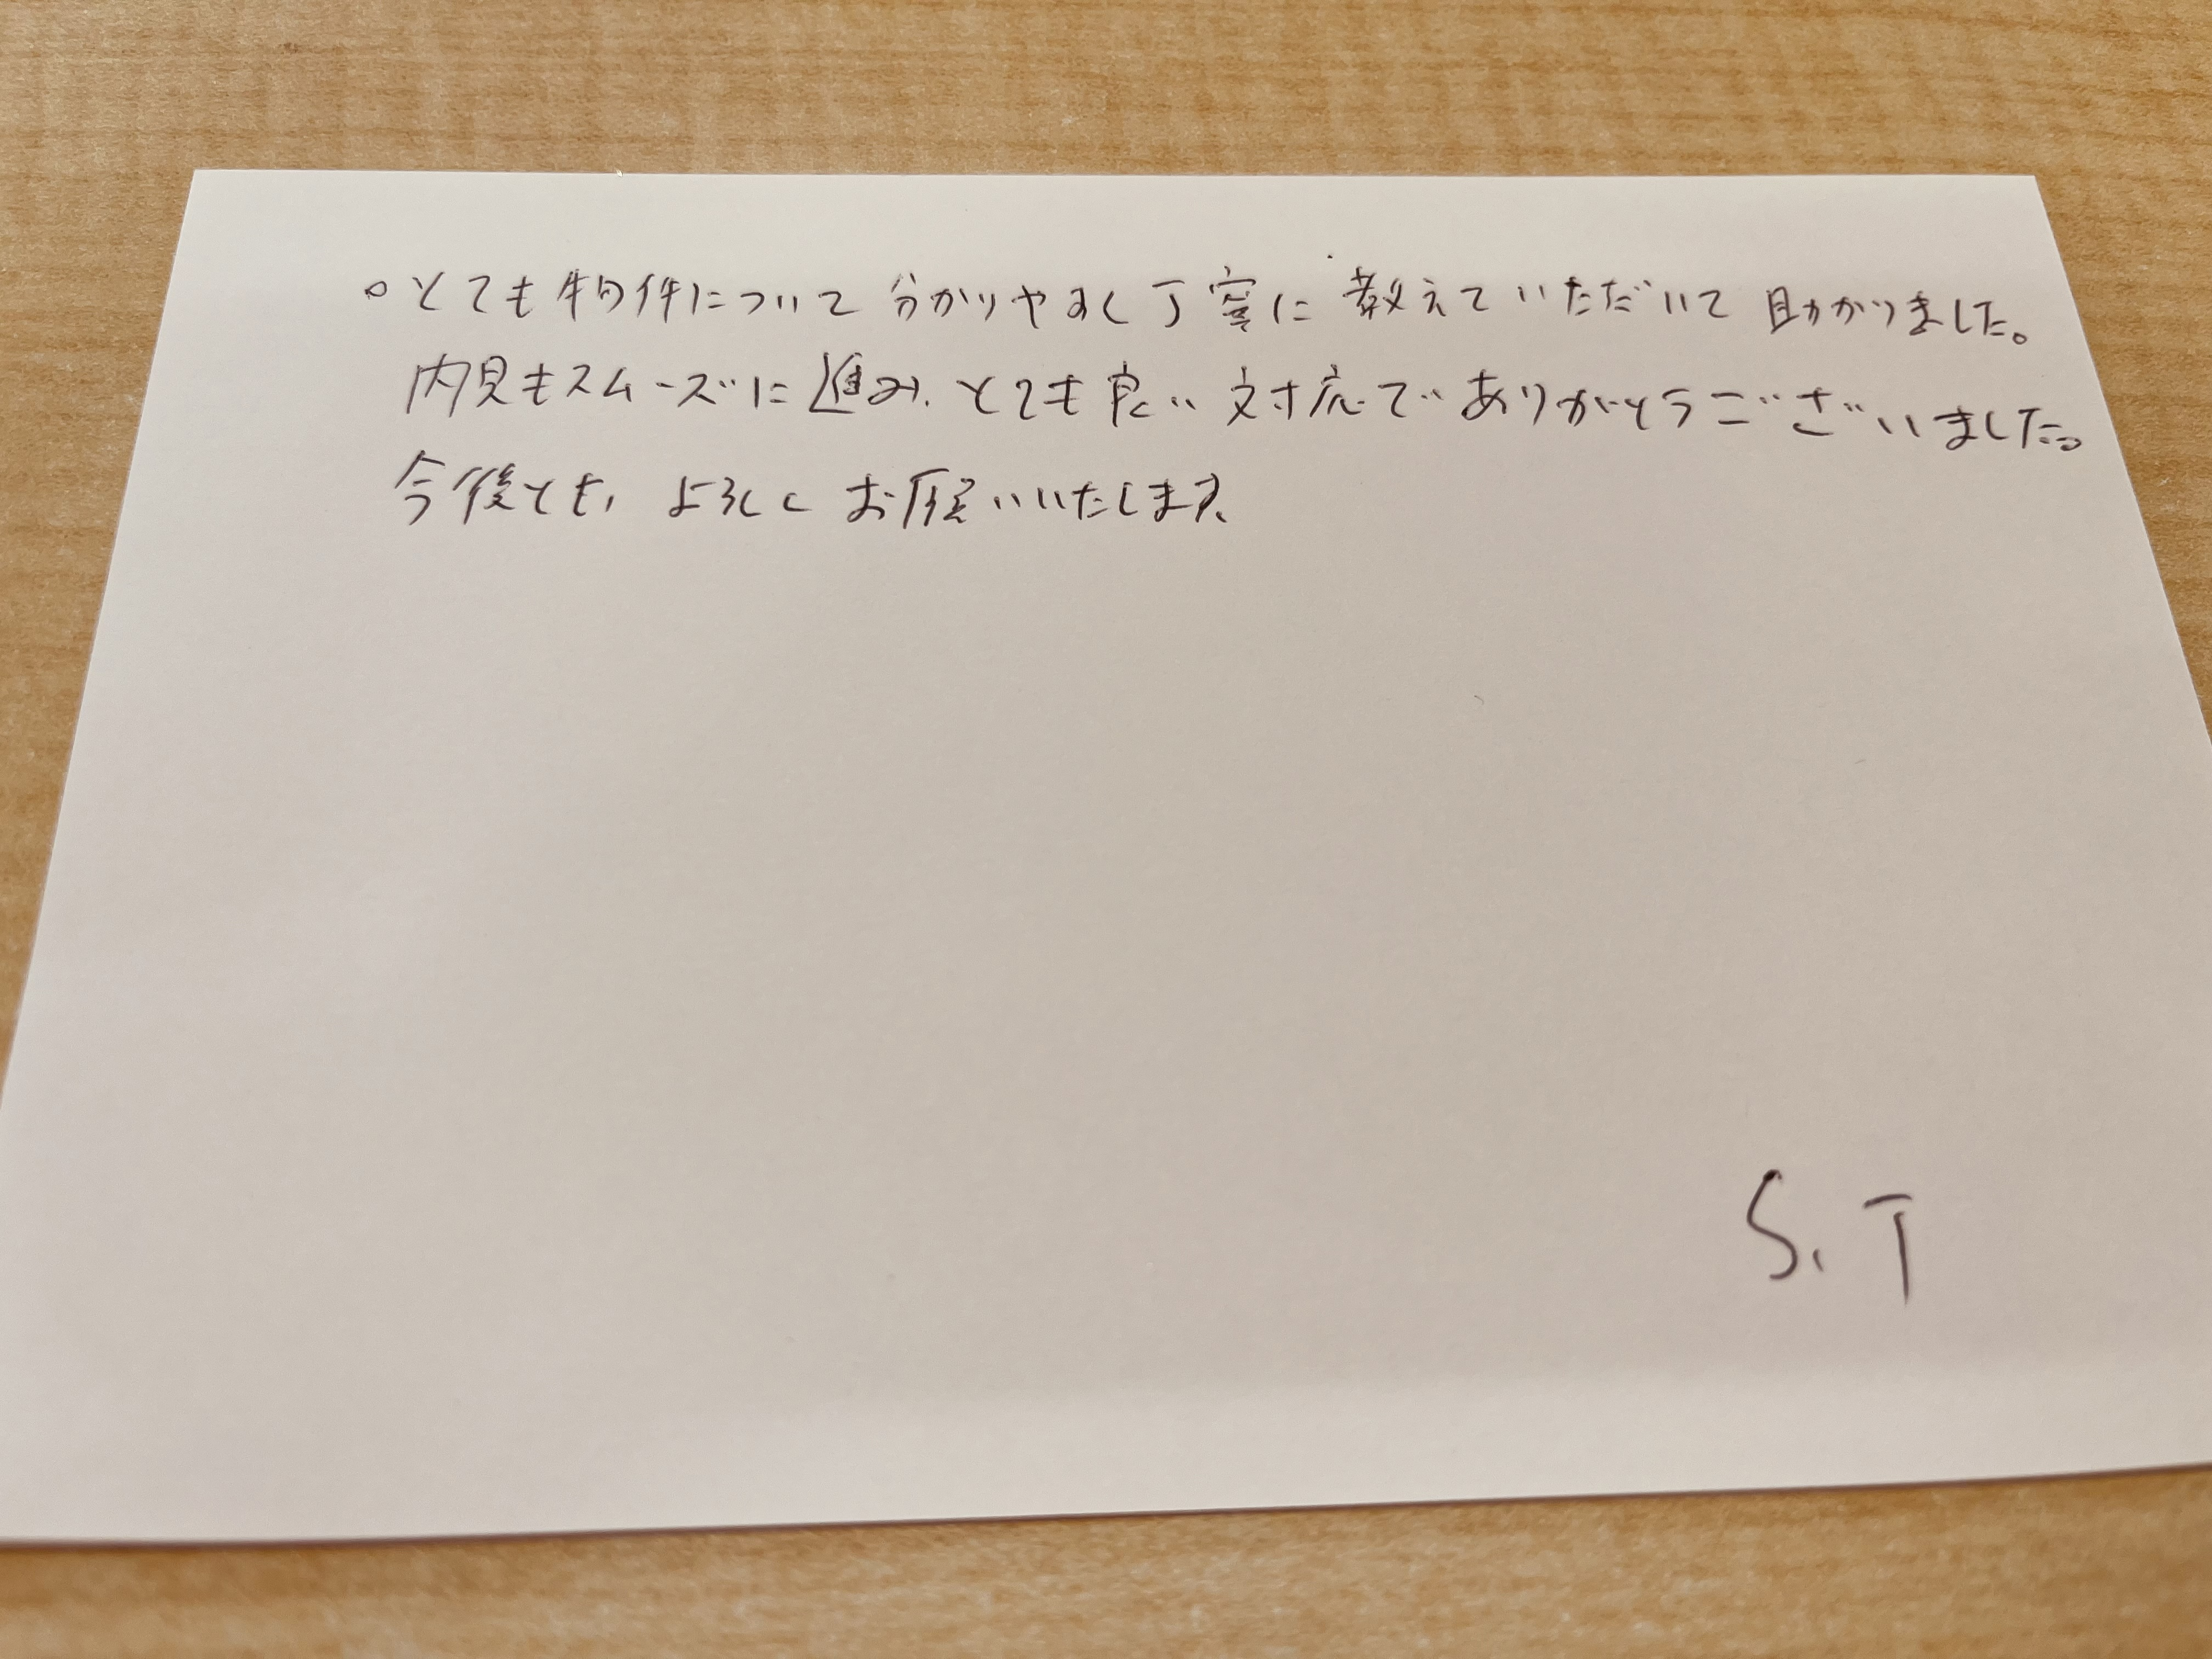 。とても物件について分かりやすく丁寧に教えていただいて助かりました。
内見もスムーズに進み、とても良い対応でありがとうございました。
今後とも、よろしくお願いいたします。
S.T